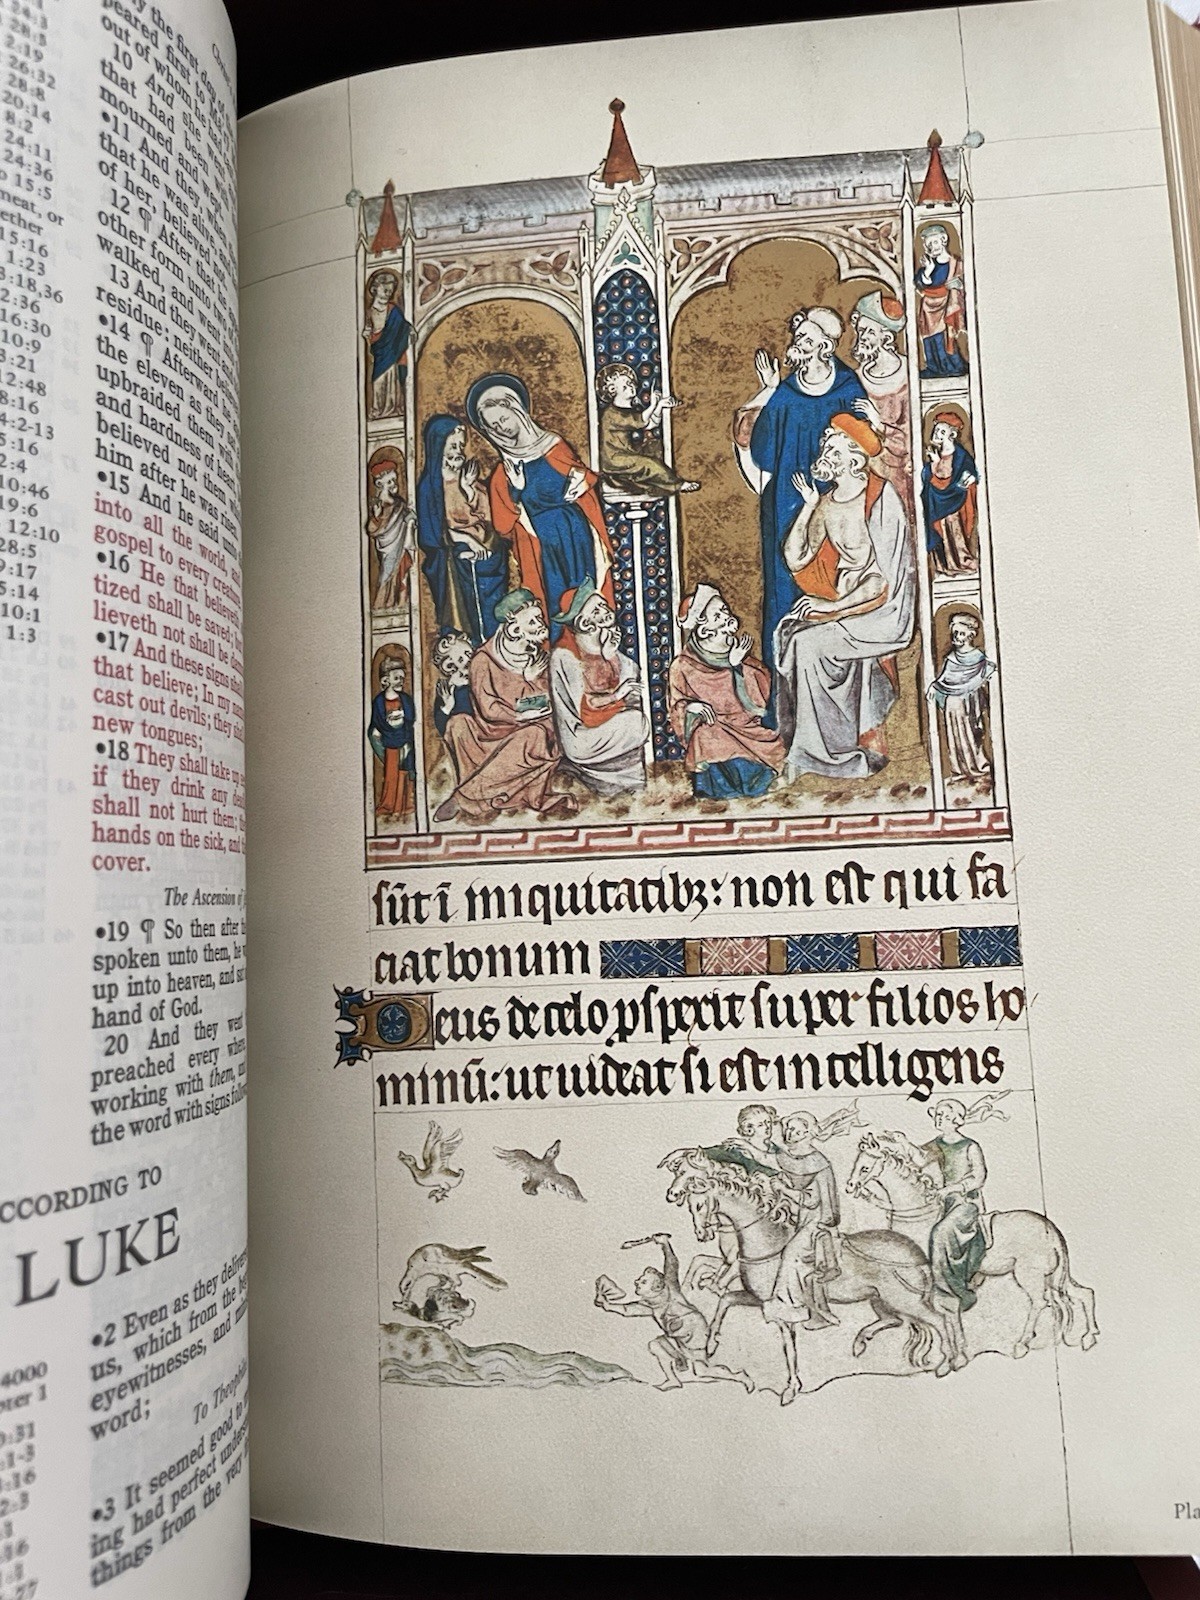 24:1
28:5
2:19
26:32
28:8
20:14
8:2
24:11
24:36
15:5
meat, or
15:16
1:23
3:18,36
2:36
16:30
10:9
3:21
12:48
8:16
4:2-13
5:16
2:4
10:46
19:6
12:10
28:5
9:17
5:14
10:1
1:3
the first day of the
peared first to
out of whom he had
10 And she went
that had been with
mourned and wept.
•11 And they, when
that he was alive, and
of her, believed not.
12 ¶ After that he
other form unto two of
walked, and went into
13 And they went and
residue: neither believed
•14 ¶ Afterward he
the eleven as they sat
upbraided them with
and hardness of heart,
believed not them which
him after he was risen
•15 And he said unto
into all the world, and
gospel to every creature
•16 He that believeth
tized shall be saved; but
lieveth not shall be
•17 And these signs shall
that believe; In my name
cast out devils; they
new tongues;
•18 They shall take up
if they drink any deadly
shall not hurt them;
hands on the sick, and
cover.
The Ascension of
•19 ¶ So then after the
spoken unto them, he
up into heaven, and sat
hand of God.
20 And they went
preached every where,
working with them, and
the word with signs
CCORDING TO
LUKE
4000
•2 Even as they
us, which from the
eyewitnesses, and
word;
To Theophilus
•3 It seemed good to
ing had perfect
things from the very
sūt ī iniquitatibꝫ: non est qui fa
ciat bonum
Deus de celo ꝓspexit super filios ho
minū: ut uideat si est intelligens
Pla